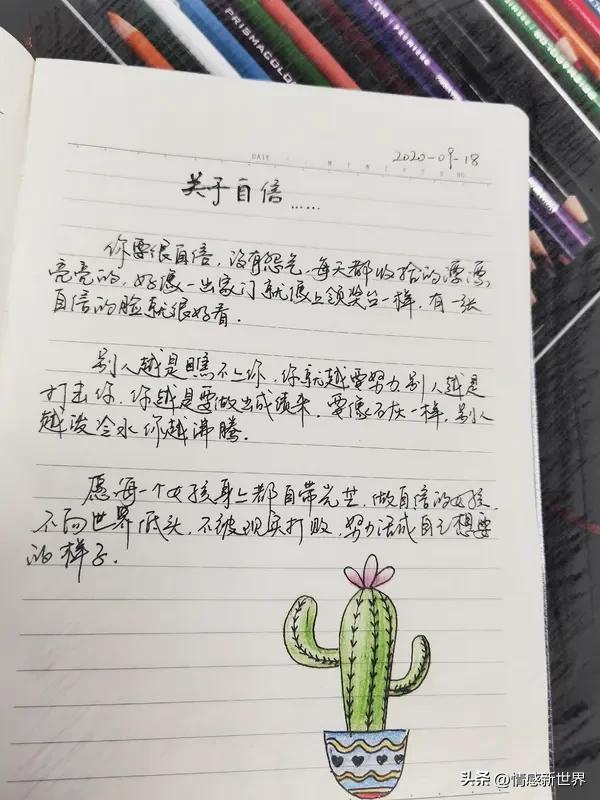 PRISMACOLOR
PREMIER
DATE
2020-09-18
关于自信……
你要很自信，没有怨气，每天都收拾的漂漂
亮亮的，好像一出家门就像上领奖台一样，有一张
自信的脸就很好看。
别人越是瞧不上你，你就越要努力别人越是
打击你，你越是要做出成绩来，要像石灰一样，别人
越泼冷水你越沸腾。
愿每一个女孩身上都自带光芒，做自信的女孩，
不向世界低头，不被现实打败，努力活成自己想要
的样子。
头条 @情感新世界